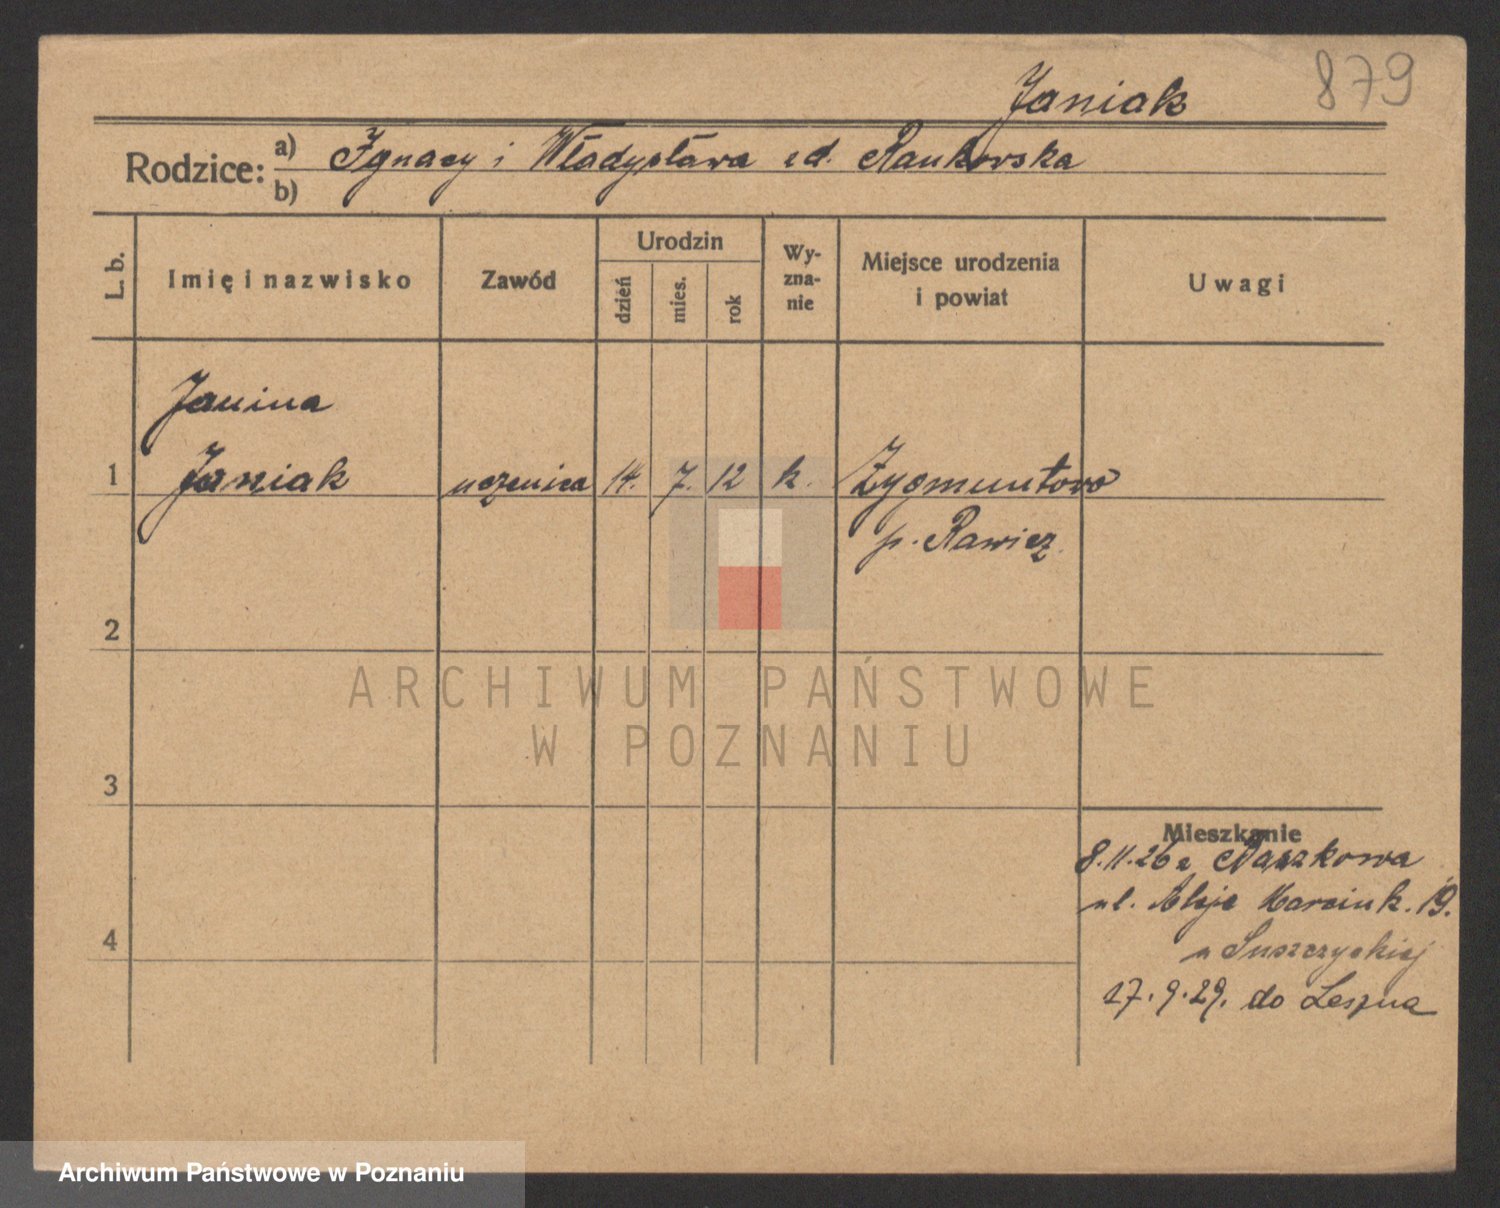 Janiak 879
Rodzice: a) Ignacy i Władysława zd. Rankowska
b)
L. b. Imię i nazwisko Zawód Urodzin dzień mies. rok Wy-zna-nie Miejsce urodzenia i powiat Uwagi
Janina
1 Janiak uczenica 14. 7. 12 k. Zygmuntowo
p. Rawicz
2
ARCHIWUM PAŃSTWOWE
W POZNANIU
3
Mieszkanie
8.11.26 z Raszkowa
ul. Aleje Marcink. 19.
4
17.9.29. do Leszna
Archiwum Państwowe w Poznaniu